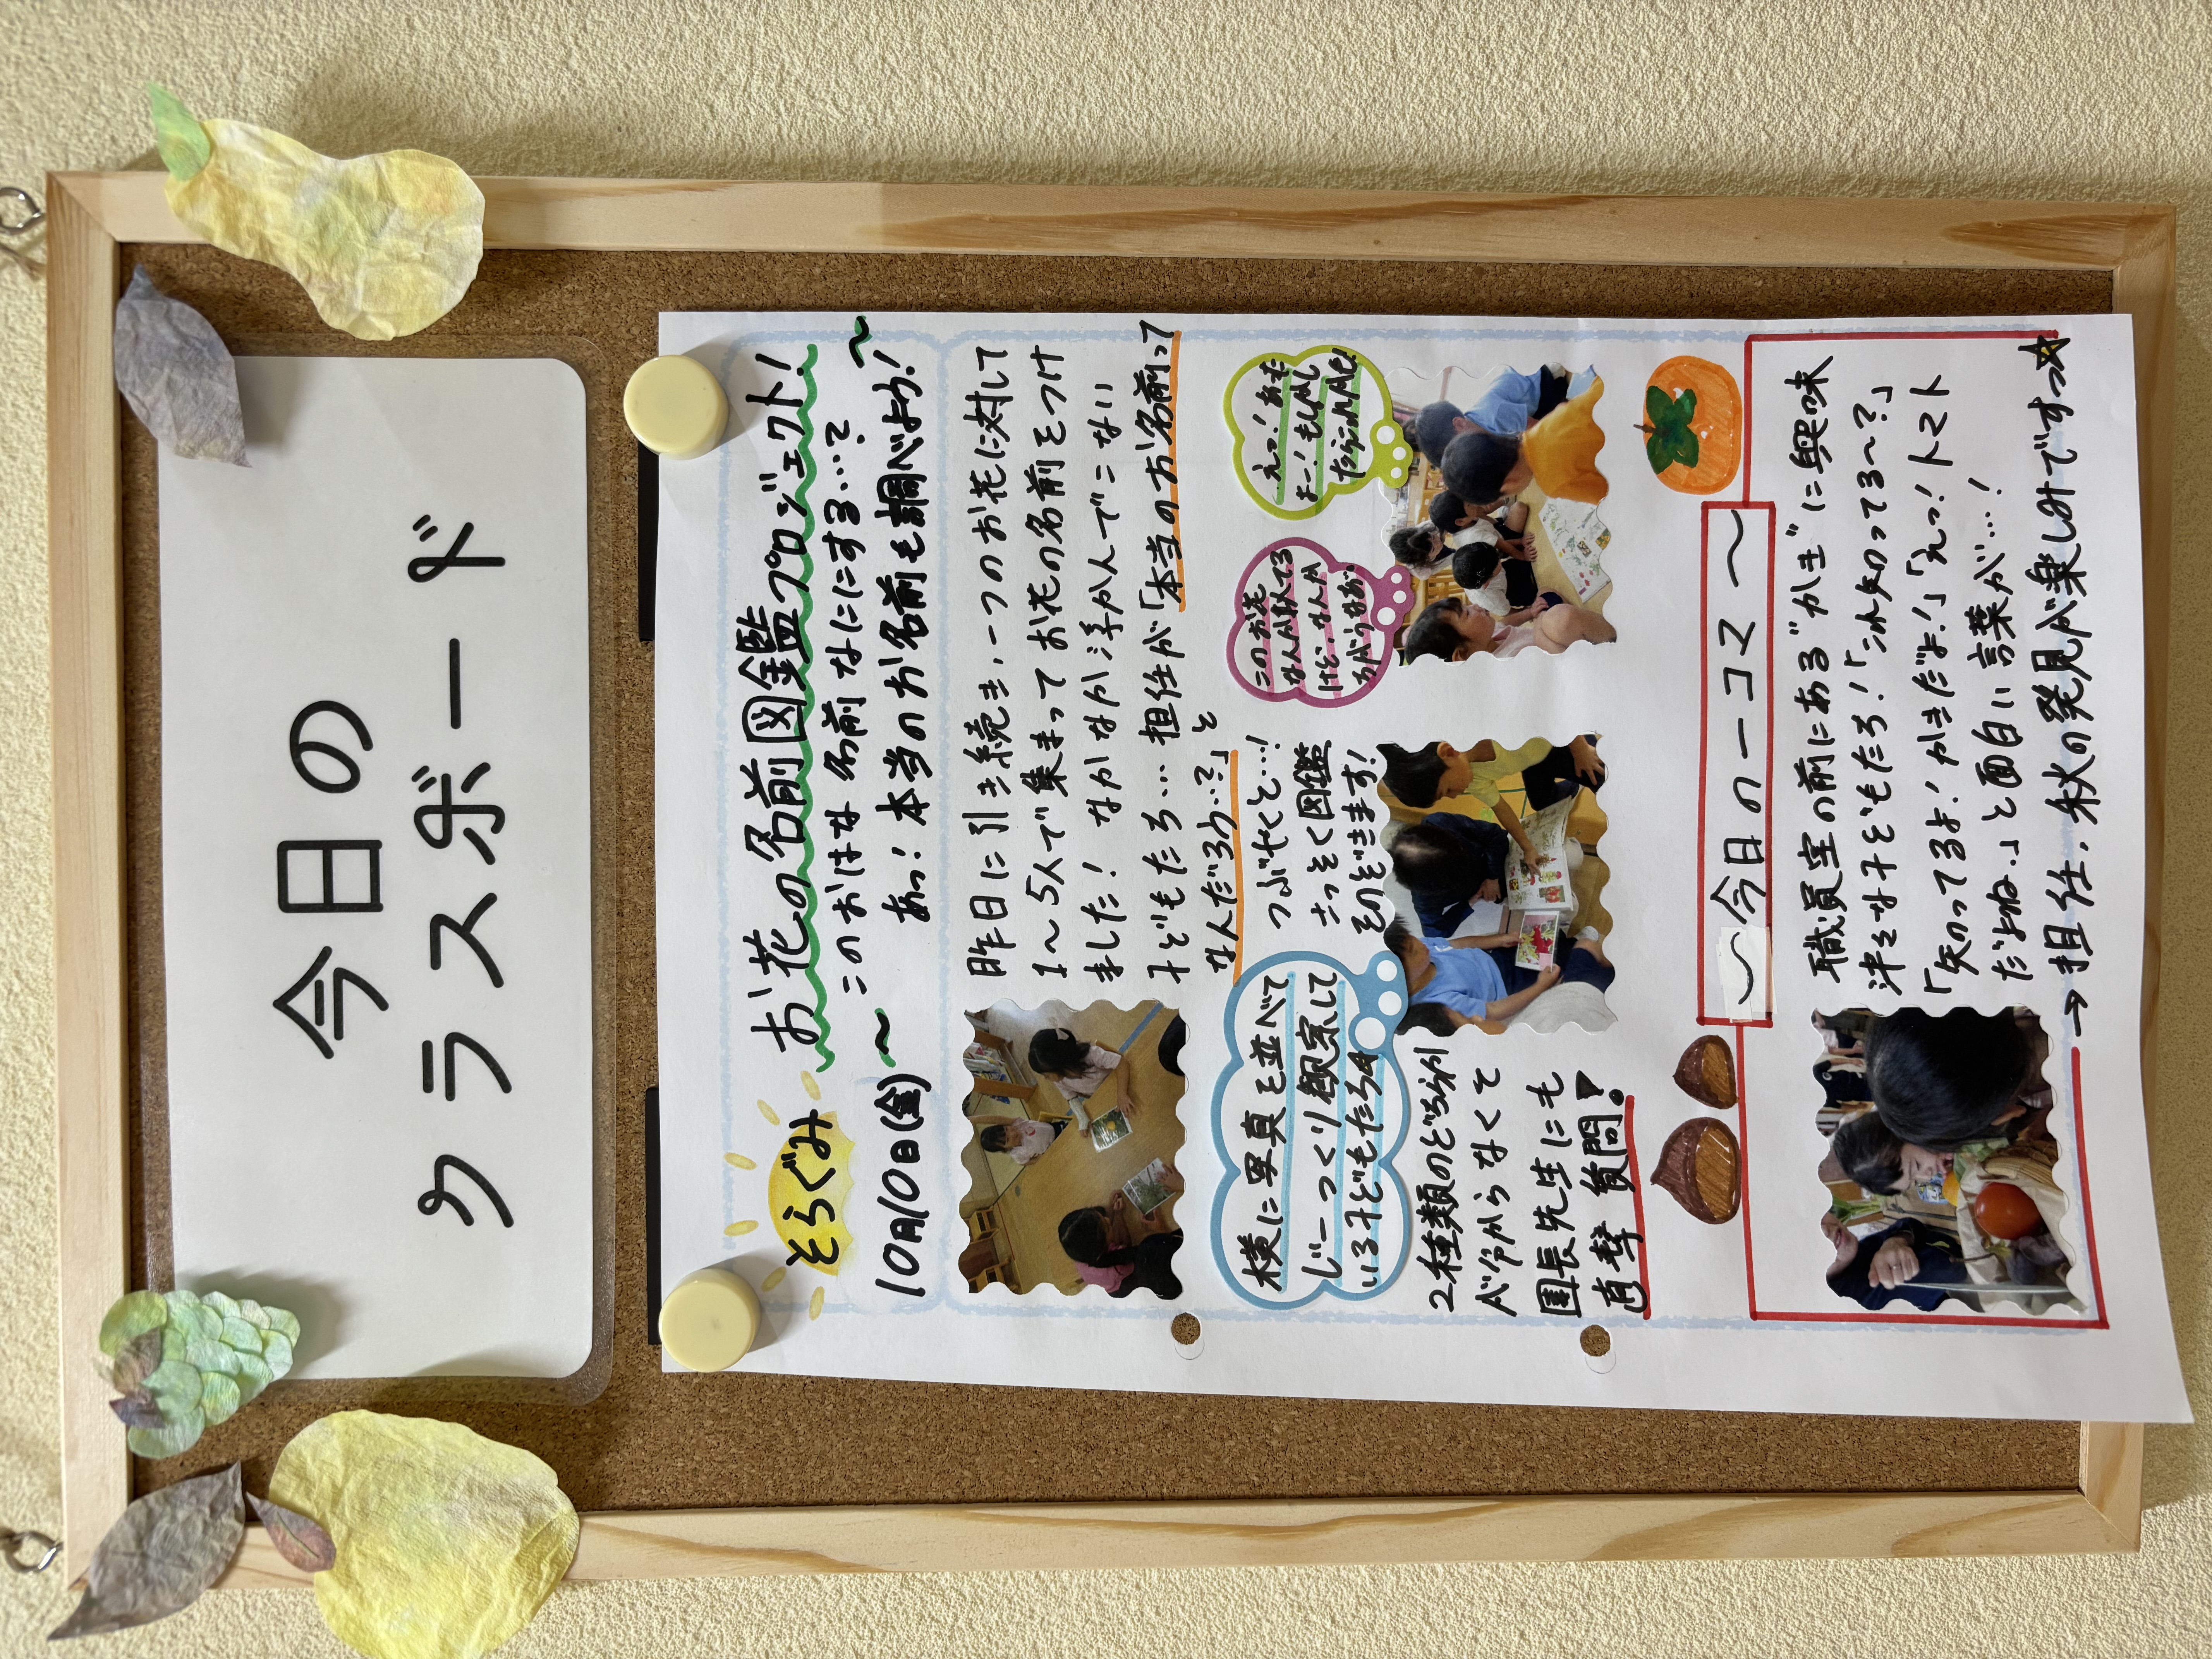 今日の
クラスボード
そらぐみ
お花の名前図鑑プロジェクト!
このおはな名前なににする…?
10月10日(金)
〜あっ!本当のお名前も調べよう!〜
昨日に引き続き、一つのお花に対して
1〜5人で集まってお花の名前をつけ
ました! なかなか手かんでこない
子どもたち…担任が「本当のお名前って
なんだろう…?」と
つぶやくと…!
さっそく図鑑
をのぞきます!
横に写真を並べて
じーっくり観察して
いる子どもたち
このお花
なんか似てる
けど、なんか
ちがうなあ。
えっ!あた
よー!もしかし
たらこれかも!
2種類のどちらか
が分からなくて
園長先生にも
直撃質問!
〜今日の一コマ〜
職員室の前にある"かき"に興味
津々な子どもたち!「これ知ってる〜?」
「知ってるよ!かきだよ!」「えっ!トマト
だよね。」と面白い言葉が…!
→担任、秋の発見が楽しみですっ☆